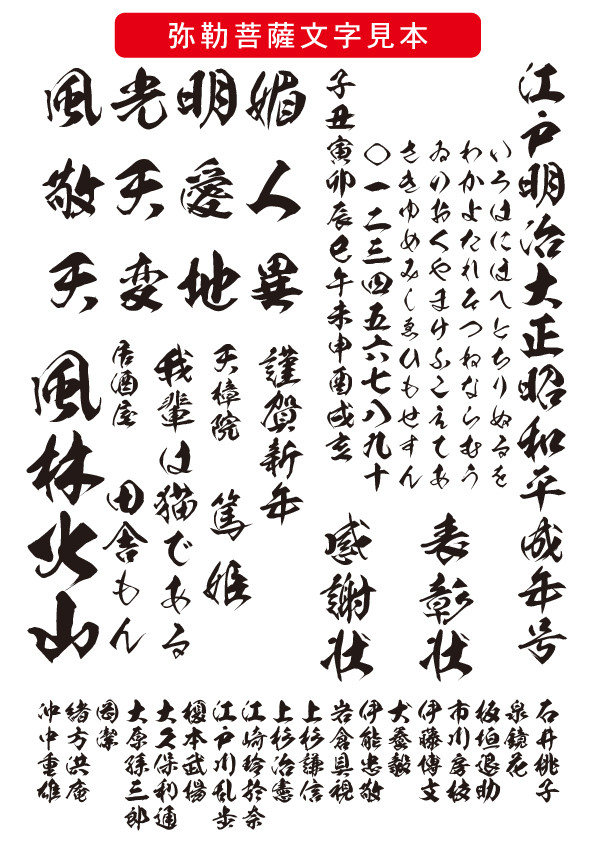 弥勒菩薩文字見本
江戸明治大正昭和平成年号
いろはにほへとちりぬるを
わかよたれそつねならむう
ゐのおくやまけふこえてあ
さきゆめみしゑひもせすん
〇一二三四五六七八九十
子丑寅卯辰巳午未申酉戌亥
表彰状
感謝状
風光明媚
敬天愛人
天変地異
謹賀新年
天樟院 篤姫
我輩は猫である
居酒屋 田舎もん
風林火山
石井桃子
泉鏡花
板垣退助
市川房枝
伊藤博文
犬養毅
伊能忠敬
岩倉具視
上杉謙信
上杉治憲
江崎玲於奈
江戸川乱歩
榎本武揚
大久保利通
大原孫三郎
岡潔
緒方洪庵
沖中重雄